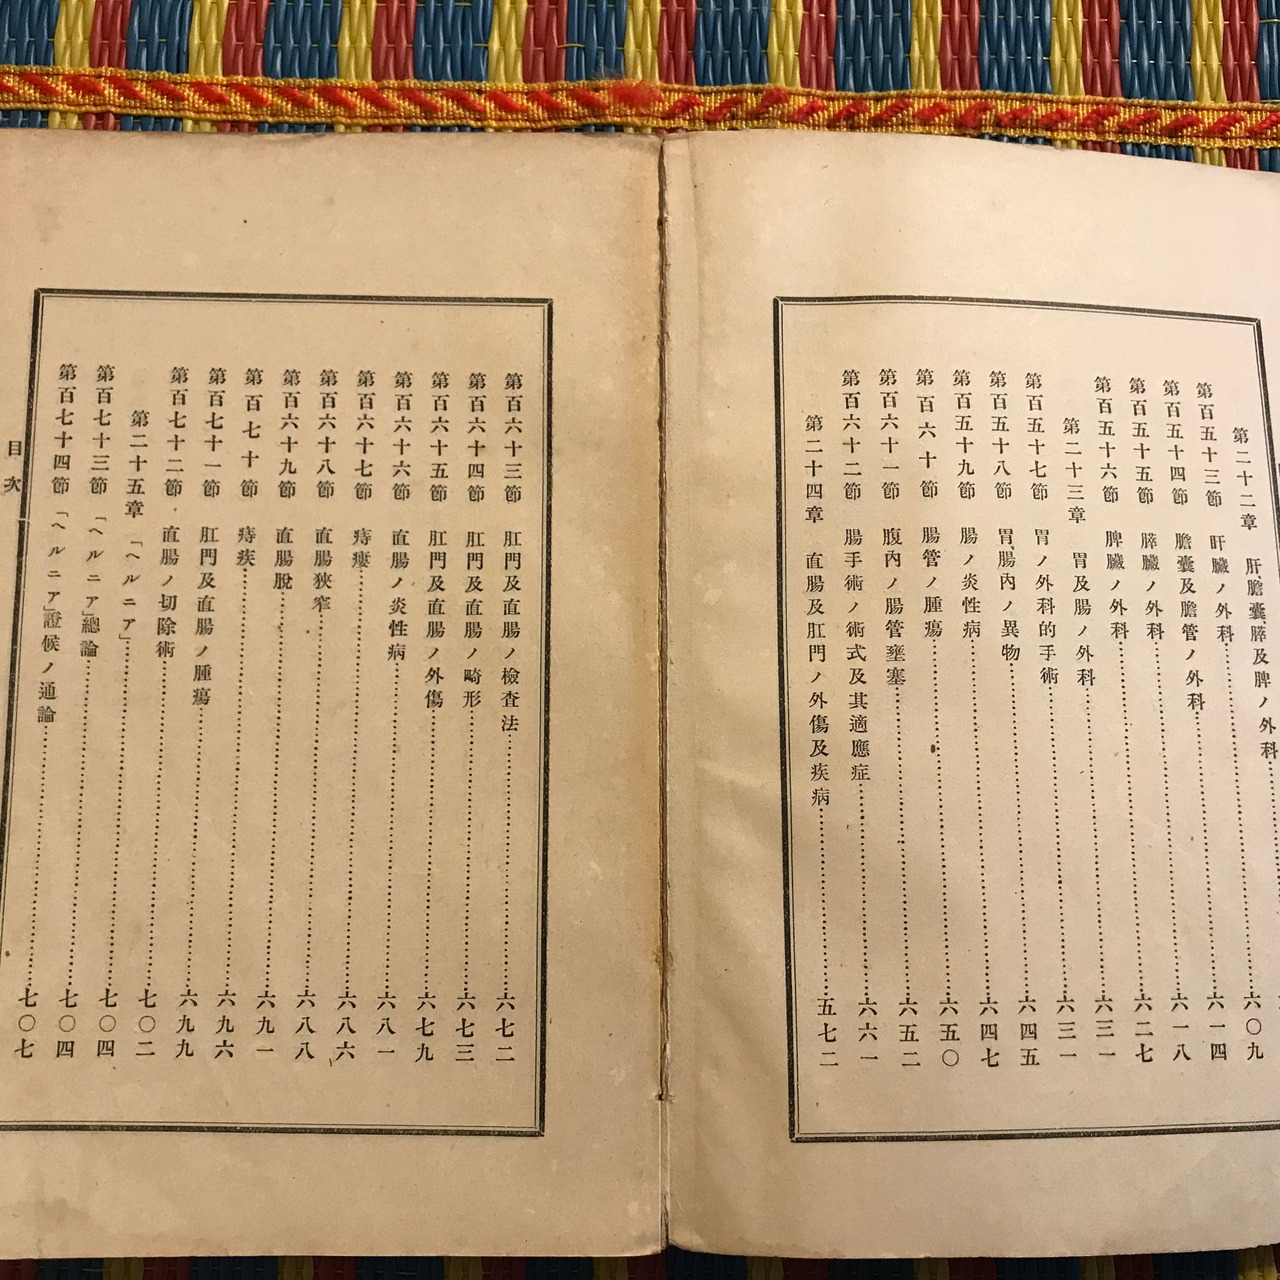 第二十二章 肝、膽囊、膵及脾ノ外科 六〇九
第百五十三節 肝臟ノ外科 六一四
第百五十四節 膽囊及膽管ノ外科 六一八
第百五十五節 膵臟ノ外科 六二七
第百五十六節 脾臟ノ外科 六三一
第二十三章 胃及腸ノ外科 六三一
第百五十七節 胃ノ外科的手術
第百五十八節 胃、腸內ノ異物 六四五
第百五十九節 腸ノ炎性病 六四七
第百六十節 腸管ノ腫瘍 六五〇
第百六十一節 腹內ノ腸管壅塞 六五二
第百六十二節 腸手術ノ術式及其適應症 六六一
第二十四章 直腸及肛門ノ外傷及疾病 五七二
第百六十三節 肛門及直腸ノ檢査法 六七二
第百六十四節 肛門及直腸ノ畸形 六七三
第百六十五節 肛門及直腸ノ外傷 六七九
第百六十六節 直腸ノ炎性病 六八一
第百六十七節 痔瘻 六八六
第百六十八節 直腸狹窄 六八八
第百六十九節 直腸脫 六九一
第百七十節 痔疾 六九六
第百七十一節 肛門及直腸ノ腫瘍 六九九
第百七十二節 直腸ノ切除術
第二十五章 「ヘルニア」 七〇二
第百七十三節 「ヘルニア」總論 七〇四
第百七十四節 「ヘルニア」證候ノ通論 七〇四
七〇七
目次